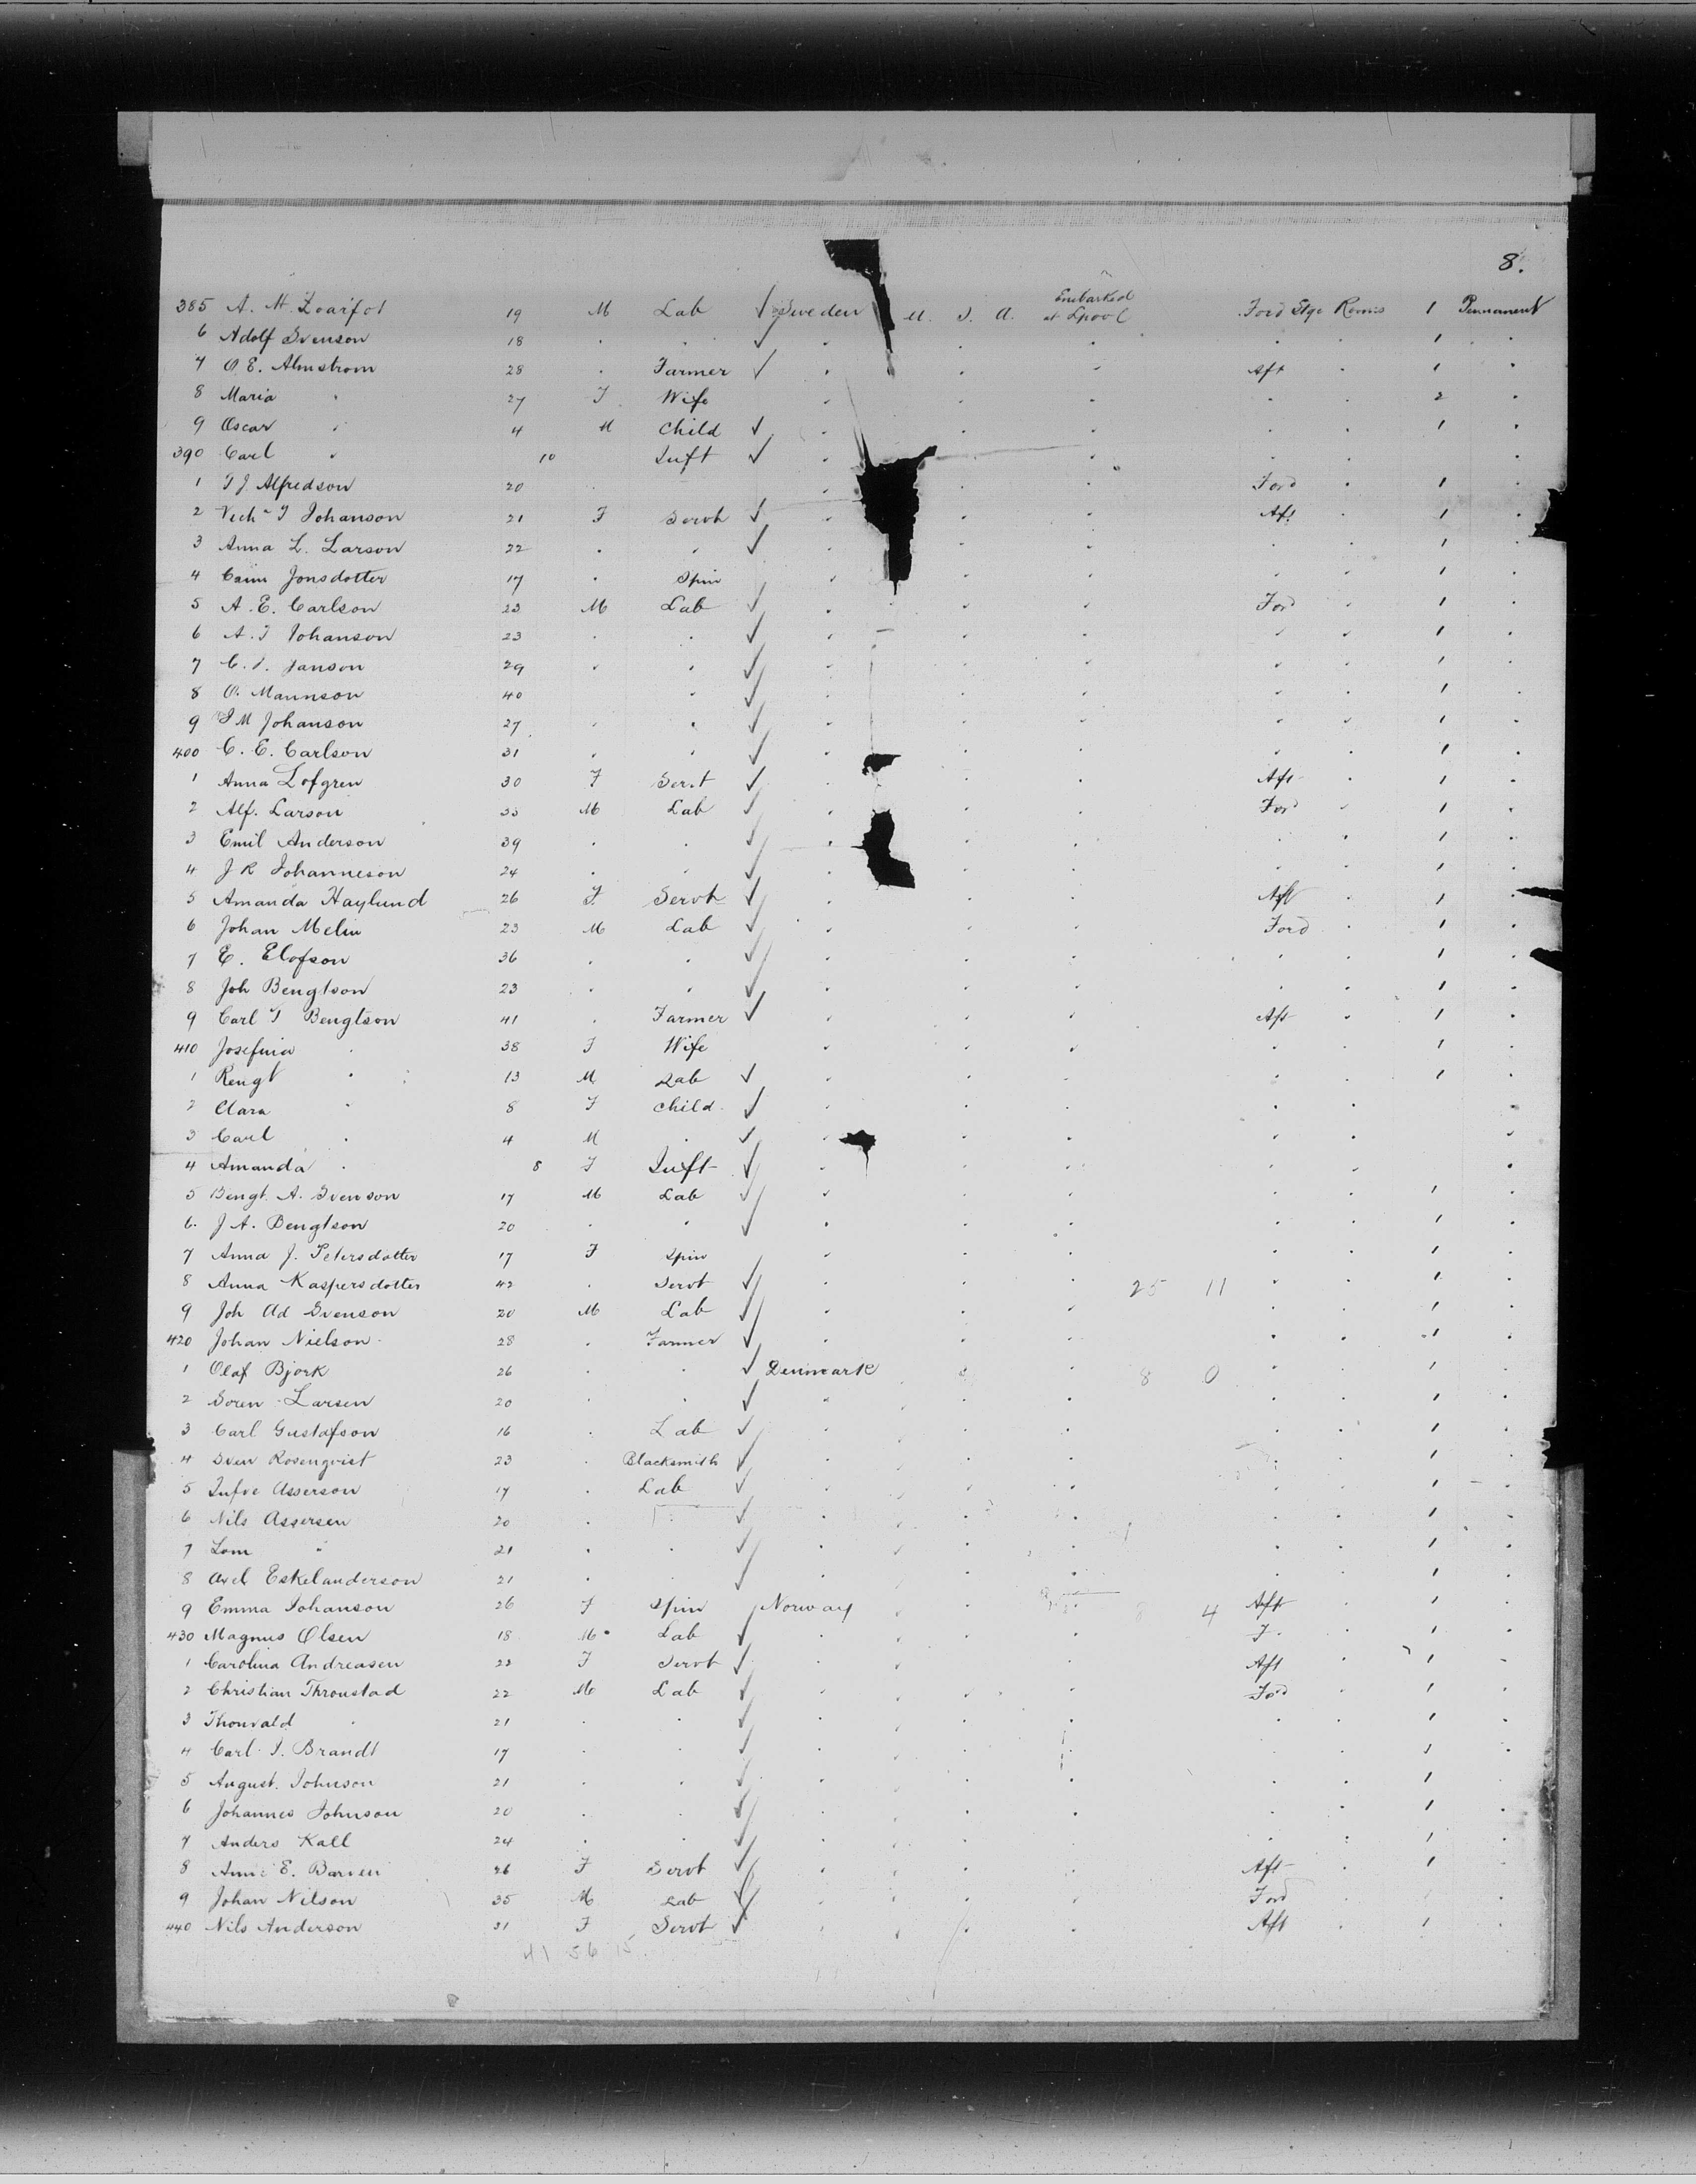 8.
385 A. H. Zoarfot 19 M Lab ✓ Sweden U. S. A. Embarked at Lpool Ford Stge Rooms 1 Permanent
6 Adolf Svenson 18 . . ✓ . . . . 1 .
7 O. E. Almstrom 28 . Farmer ✓ . . . Aft . 1 .
8 Maria " 27 F Wife . . . . . 2 .
9 Oscar " 4 M Child ✓ . . . . . 1 .
390 Carl " 10 Inft ✓ . . . . .
1 T J Alfredson 20 . . . Ford . 1 .
2 Vech T Johanson 21 F Servt ✓ . . . Aft . 1 .
3 Anna L. Larson 22 . . ✓ . . . . . 1 .
4 Cain Jonsdotter 17 . Spin . . . . . 1 .
5 A. E. Carlson 23 M Lab ✓ . . . Ford . 1 .
6 A. T Johanson 23 . . ✓ . . . . . 1 .
7 C. J. Janson 29 . . ✓ . . . . . 1 .
8 O. Mannson 40 . ✓ . . . . . 1 .
9 J M Johanson 27 . . ✓ . . . . . 1 .
400 C. E. Carlson 31 . . ✓ . . . . . 1 .
1 Anna Lofgren 30 F Servt ✓ . . . Aft . 1 .
2 Alf. Larson 33 M Lab ✓ . . . Ford . 1 .
3 Emil Anderson 39 . . ✓ . . . . . 1 .
4 J R Johanneson 24 . . ✓ . . . . . 1 .
5 Amanda Haylund 26 F Servt ✓ . . . Aft . 1 .
6 Johan Melin 23 M Lab ✓ . . . Ford . 1 .
7 E. Elofson 36 . . ✓ . . . . . 1 .
8 Joh Bengtson 23 . . ✓ . . . . . 1 .
9 Carl T Bengtson 41 . Farmer ✓ . . . Aft . 1 .
410 Josefina . 38 F Wife . . . . . 1 .
1 Bengt . 13 M Lab ✓ . . . . . 1 .
2 Clara . 8 F Child ✓ . . . . . .
3 Carl . 4 M . ✓ . . . . . .
4 Amanda . 8 F Inft ✓ . . . . . .
5 Bengt. A. Svenson 17 M Lab ✓ . . . . . 1 .
6. J. A. Bengtson 20 . . ✓ . . . . . 1 .
7 Anna J. Petersdotter 17 F Spin . . . . . 1 .
8 Anna Kaspersdotter 42 . Servt ✓ . . . 25 11 . . 1 .
9 Joh Ad Svenson 20 M Lab ✓ . . . . . 1 .
420 Johan Nielson 28 . Farmer ✓ . . . . . 1 .
1 Olaf Bjork 26 . . ✓ Denmark . . 8 0 . . 1 .
2 Soren Larsen 20 . . ✓ . . . . . . 1 .
3 Carl Gustafson 16 . Lab ✓ . . . . . . 1 .
4 Sven Rosenqvist 23 . Blacksmith ✓ . . . . . 1 .
5 Tufve Asserson 17 . Lab ✓ . . . . . . 1 .
6 Nils Assersen 20 . ✓ . . . . . . 1 .
7 Lom " 21 . . ✓ . . . . . . 1 .
8 Axel Eskelanderson 21 . . ✓ . . . . . . 1 .
9 Emma Johanson 26 F Spin Norway . . . 8 4 Aft . 1 .
430 Magnus Olsen 18 M Lab ✓ . . . . F. . 1 .
1 Carolina Andreasen 22 F Servt ✓ . . . . Aft 1 .
2 Christian Throustad 22 M Lab ✓ . . . . Ford . 1 .
3 Thorvald . 21 . . ✓ . . . . . . 1 .
4 Carl J. Brandt 17 . . ✓ . . . . . . 1 .
5 August. Johnson 21 . . ✓ . . . . . . 1 .
6 Johannes Johnson 20 . . ✓ . . . . . . 1 .
7 Anders Kall 24 . . ✓ . . . . . . 1 .
8 Anne E. Barven 26 F Servt ✓ . . . . Aft . 1 .
9 Johan Nilson 35 M Lab ✓ . . . . Ford . .
440 Nils Anderson 31 F Servt ✓ . . . . Aft . 1 .
41 56 15